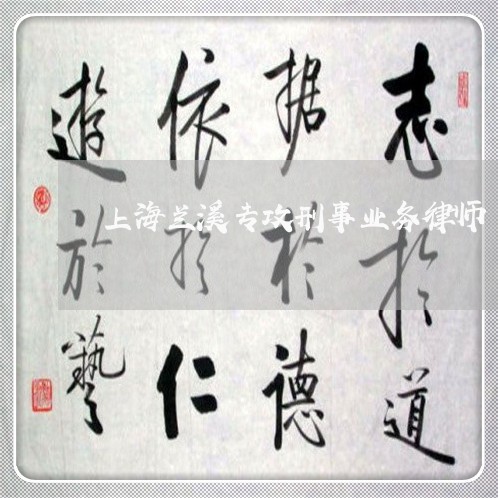 志於道
据於德
依於仁
遊於藝
上海兰溪专攻刑事业务律师